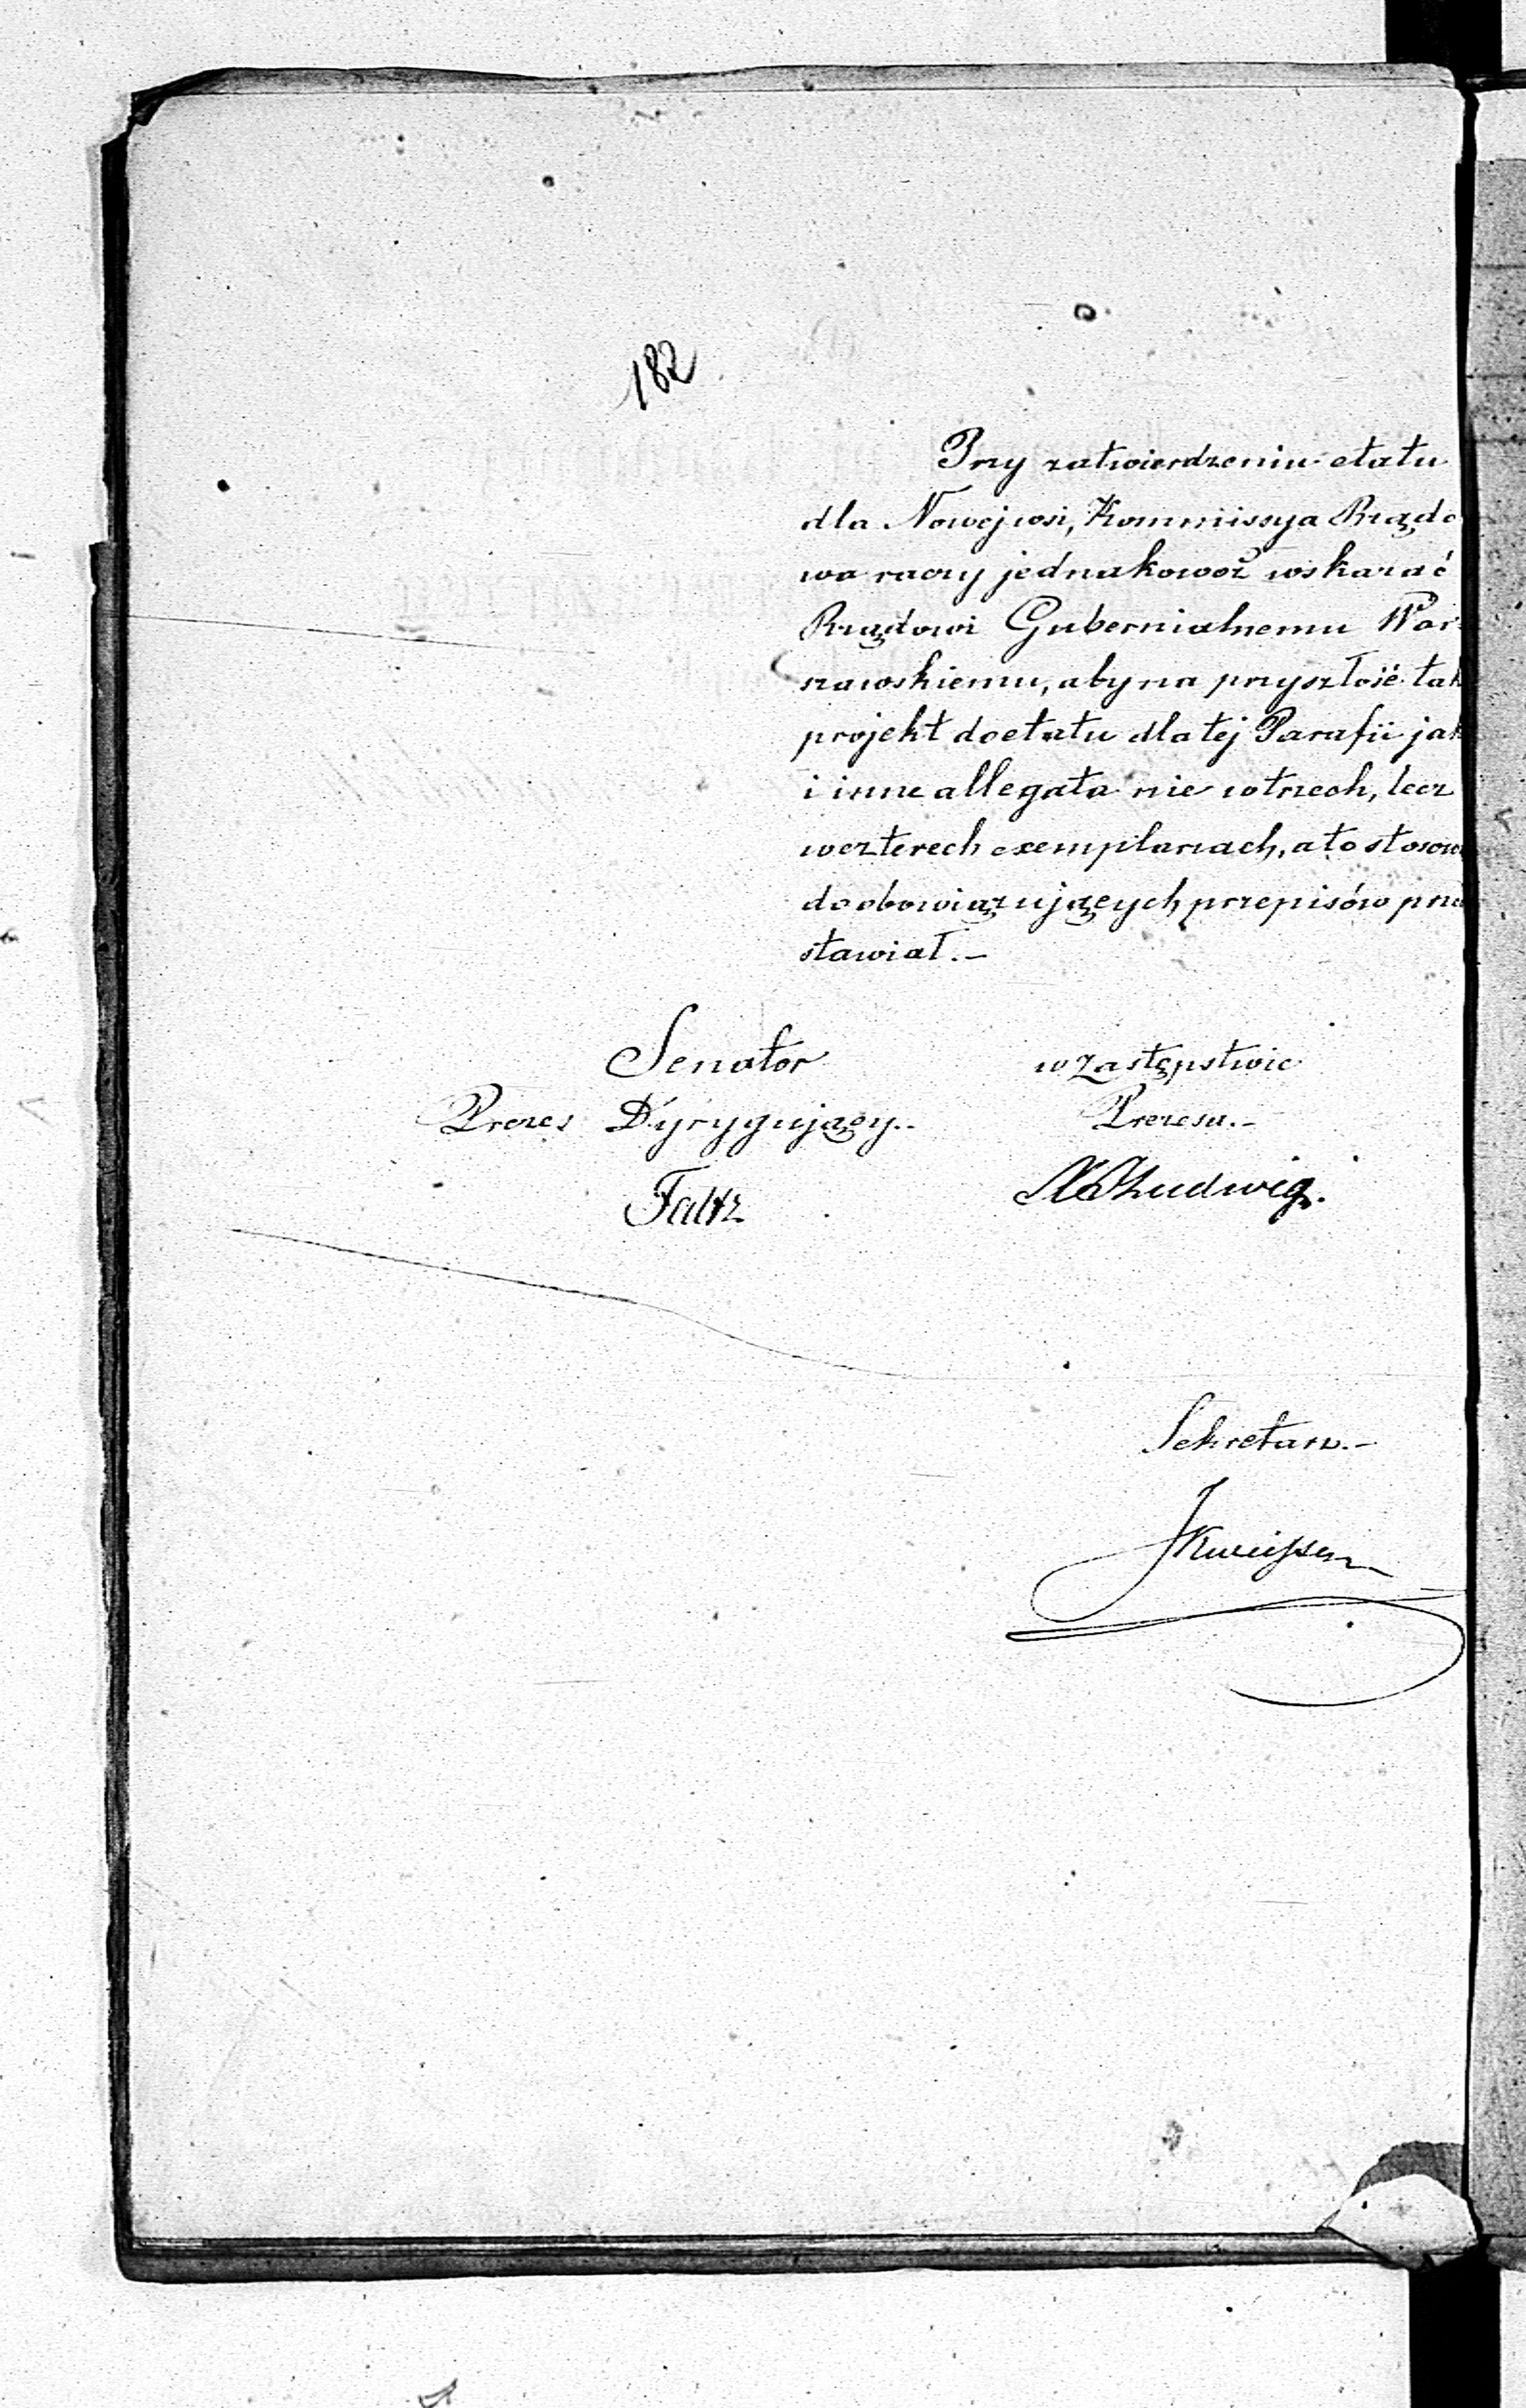 182
Przy zatwierdzeniu etatu
dla Nowejwsi, Kommissya Rządo
wa raczy jednakowoż wskazać
Rządowi Gubernialnemu War-
szawskiemu, aby na przyszłość tak
projekt do etatu dla tej Parafii jak
i inne allegata nie w trzech, lecz
w czterech exemplarzach, a to stosow
do obowiązujących przepisów prze
stawiał.-
Senator w Zastępstwie
Prezes Dyrygujący.- Prezesa.-
Faltz Ludwig.
Sekretarz.-